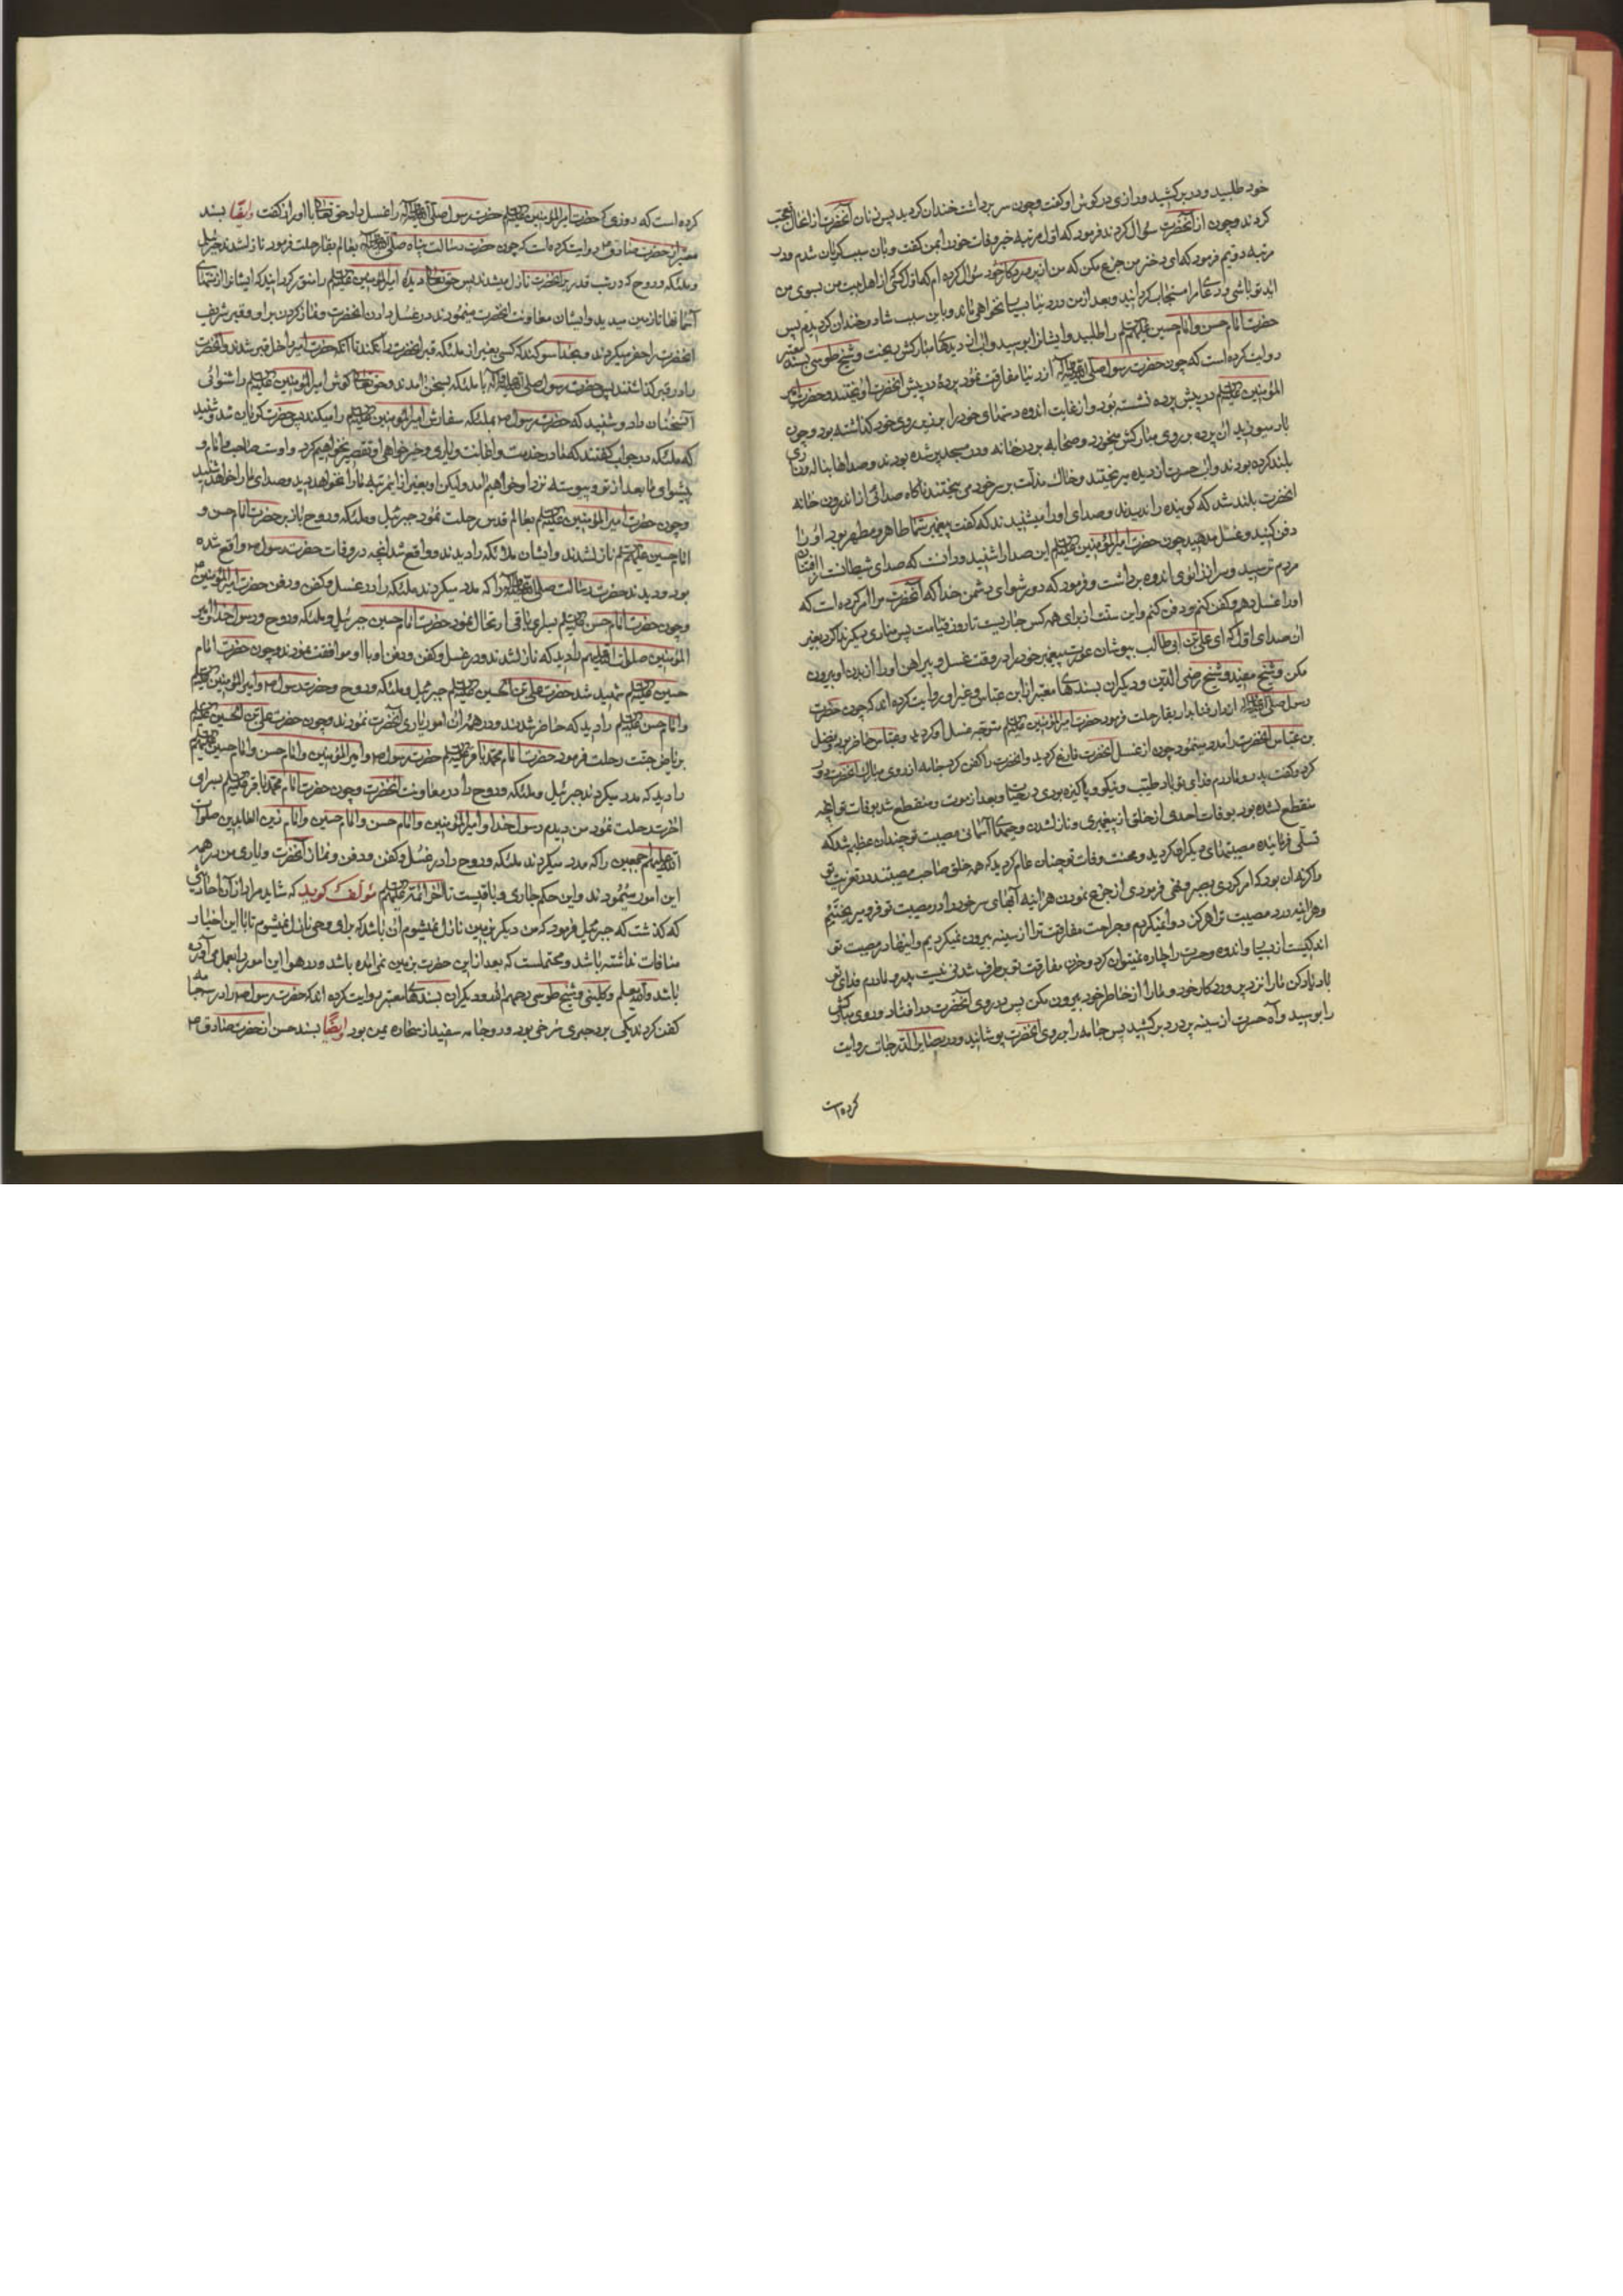 خود طلبید و در بر کشید و رازی در گوش او گفت و چون سر برداشت خندان گردید پس زنان آنحضرت از این حال تعجب
کردند و چون از آنحضرت سؤال کردند فرمود که اول مرتبه خبر وفات خود را بمن گفت و بآن سبب گریان شدم و در
مرتبه دویم فرمود که ای دختر من جزع مکن که من از پروردگار خود سؤال کرده ام که اول کسی از اهل بیت من بسوی من
آید تو باشی و دعای مرا مستجاب گردانید و بعد از من در دنیا بسیار نخواهی ماند و باین سبب شاد و خندان گردیدم پس
حضرت امام حسن و امام حسین علیهم السلم را طلبید و ایشانرا بوسید و آب از دیدهای مبارکش میریخت و شیخ طوسی بسند معتبر
روایت کرده است که چون حضرت رسول صلی الله علیه وآله از دنیا مفارقت نمود پردهٔ در پیش آنحضرت آویختند و حضرت امیر
المؤمنین علیه السلم در پیش پرده نشسته بود و از غایت اندوه دستهای خود را بر روی خود گذاشته بود و چون
باد میوزید آن پرده بر روی مبارکش میخورد و صحابه بر در خانه و در مسجد پر شده بودند و صداها بناله و زاری
بلند کرده بودند و آب حسرت از دیده میریختند و خاک مذلت بر سر خود می بیختند ناگاه صدائی از اندرون خانه
آنحضرت بلند شد که گوینده را ندیدند و صدای او را میشنیدند که گفت پیغمبر شما طاهر و مطهر بود او را
دفن کنید و غسل مدهید چون حضرت امیر المؤمنین علیه السلم این صدا را شنید و دانست که صدای شیطانست از افتتان
مردم ترسید و سر از زانوی اندوه برداشت و فرمود که دور شو ای دشمن خدا که آنحضرت مرا امر کرده است که
او را غسل دهم و کفن کنم و دفن کنم و این سنت از برای همه کس جاریست تا روز قیامت پس منادی دیگر ندا کرد بغیر
آن صدای اول که ای علی بن ابی طالب بپوشان عورت پیغمبر خود را در وقت غسل و پیراهن او را از بدن او بیرون
مکن و شیخ مفید و شیخ رضی الدین و دیگران بسندهای معتبر از ابن عباس و غیر او روایت کرده اند که چون حضرت
رسول صلی الله علیه وآله از دار فنا بدار بقا رحلت فرمود حضرت امیر المؤمنین علیه السلم متوجه غسل او گردید و عباس حاضر بود و فضل
بن عباس آنحضرت را مدد مینمود چون از غسل آنحضرت فارغ گردید و آنحضرت را کفن کرد جامه از روی مبارک آنحضرت دور
کرد و گفت پدر و مادرم فدای تو باد طیب و نیکو و پاکیزه بودی در حیات و بعد از موت و منقطع شد بوفات تو آنچه
منقطع نشده بود بوفات احدی از خلق از پیغمبری و نازل شدن وحیهای آسمانی مصیبت تو چندان عظیم شد که
تسلی فرماینده مصیبتهای دیگران گردید و محنت وفات تو چنان عام گردید که همه خلق صاحب مصیبتند در تعزیت تو
و اگر نه آن بود که امر کردی بصبر و نهی فرمودی از جزع نمودن هر آینه آبهای سر خود را در مصیبت تو فرو میریختیم
و هر آینه درد مصیبت ترا هرگز دوا نمیکردیم و جراحت مفارقت ترا از سینه بیرون نمیکردیم و اینها در مصیبت تو
اندکیست از بسیار و اندوه و حسرت را چاره نمیتوان کرد و حزن مفارقت تو برطرف شدنی نیست پدر و مادرم فدای تو
باد یاد کن ما را نزد پروردگار خود و ما را از خاطر خود بیرون مکن پس بر روی آنحضرت در افتاد و روی مبارکش
را بوسید و آه حسرت از سینه پر درد بر کشید پس جامه را بر روی آنحضرت پوشانید و در بصایر الدرجات روایت
کرده است
کرده است که روزی که حضرت امیر المؤمنین علیه السلم حضرت رسول صلی الله علیه وآله را غسل داد حق تعالی با او راز گفت و ایضا بسند
معتبر از حضرت صادق ع روایت کرده است که چون حضرت رسالت پناه صلی الله علیه وآله بعالم بقا رحلت فرمود نازل شدند جبرئیل
و ملئکه و روح که در شب قدر بر آنحضرت نازل میشدند پس حق تعالی دیدهٔ امیر المؤمنین علیه السلم را منور گردانید که ایشانرا از منتهای
آسمانها تا زمین میدید و ایشان معاونت آنحضرت مینمودند در غسل دادن آنحضرت و نماز کردن بر او و قبر شریف
آنحضرت را حفر میکردند و بخدا سوگند که کسی بغیر از ملئکه قبر آنحضرت را نکند تا آنکه حضرت امیر داخل قبر شد و آنحضرت
را در قبر گذاشتند پس حضرت رسول صلی الله علیه وآله با ملئکه بسخن آمدند و حق تعالی گوش امیر المؤمنین علیه السلم را شنوائی
آن سخنان داد و شنید که حضرت رسول ص بملئکه سفارش امیر المؤمنین علیه السلم را میکند پس حضرت گریان شد و شنید
که ملئکه در جواب گفتند که ما در خدمت و اعانت و یاری و خیر خواهی او تقصیر نخواهیم کرد و اوست صاحب ما و امام و
پیشوای ما بعد از تو و پیوسته نزد او خواهیم آمد ولیکن او بغیر از این مرتبه ما را نخواهد دید و صدای ما را خواهد شنید
و چون حضرت امیر المؤمنین علیه السلم بعالم قدس رحلت نمود جبرئیل و ملئکه و روح باز بر حضرت امام حسن و
امام حسین علیهم السلم نازل شدند و ایشان ملائکه را دیدند و واقع شد آنچه در وفات حضرت رسول ص واقع شده
بود و دیدند حضرت رسالت صلی الله علیه وآله را که مدد میکردند ملئکه را در غسل و کفن و دفن حضرت امیر المؤمنین ع
و چون حضرت امام حسن علیه السلم بسرای باقی ارتحال نمود حضرت امام حسین جبرئیل و ملئکه و روح و رسول خدا و امیر
المؤمنین صلوات الله علیهم را دید که نازل شدند و در غسل و کفن و دفن او با او موافقت نمودند و چون حضرت امام
حسین علیه السلم شهید شد حضرت علی بن الحسین علیه السلم جبرئیل و ملئکه و روح و حضرت رسول ص و امیر المؤمنین علیه السلم
و امام حسن علیه السلم را دید که حاضر شدند و در همه آن امور یاری آنحضرت نمودند و چون حضرت علی بن الحسین علیه السلم
بریاض جنت رحلت فرمود حضرت امام محمد باقر علیه السلم حضرت رسول ص و امیر المؤمنین و امام حسن و امام حسین علیهم السلم
را دید که مدد میکردند جبرئیل و ملئکه و روح را در معاونت آنحضرت و چون حضرت امام محمد باقر علیه السلم بسرای
آخرت رحلت نمود من دیدم رسول خدا و امیر المؤمنین و امام حسن و امام حسین و امام زین العابدین صلوات
الله علیهم اجمعین را که مدد میکردند ملئکه و روح را در غسل و کفن و دفن و نماز آنحضرت و یاری من در همه
این امور مینمودند و این حکم جاری و باقیست تا آخر ائمه علیهم السلم مؤلف گوید که شاید مراد از آن احادیثی
که گذشت که جبرئیل فرمود که من دیگر بزمین نازل نمیشوم آن باشد که برای وحی نازل نمیشوم تا با این اخبار
منافات نداشته باشد و محتملست که بعد از این حضرت بزمین نمی آمده باشد و در هوا این امور را بعمل می آورده
باشد والله یعلم و کلینی و شیخ طوسی رحمهم الله و دیگران بسندهای معتبر روایت کرده اند که حضرت رسول ص را در سه جامه
کفن کردند یکی برد حبری سرخی بود و دو جامه سفید از صحار یمن بود ایضا بسند حسن از حضرت صادق ع